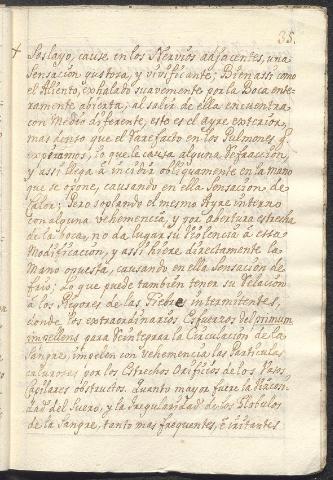 35.
+
Soslayo, cause en los Nervios adjacentes, una
Sensacion gustosa, y vivificante; Bien assi como
el Aliento, exhalado suavemente por la Boca ente-
ramente abierta, al salir de ella encuentra
con Medio diferente, esto es el ayre exterior,
mas denso que el rarefacto en los Pulmones q.
expiramos, lo que le causa alguna Refraccion,
y assi llega à incidir obliquamente en la mano
que se opone, causando en ella Sensacion de
Calor; Pero soplando el mesmo Ayre interno
con alguna vehemencia, y por abertura estrecha
de la boca, no da lugar su violencia à essa
Modificacion, y assi hiere directamente la
Mano opuesta, causando en ella Sensacion de
frio; Lo que puede tambien tener su Relacion
à los Rigores de las Fiebres intermitentes,
donde los extraordinarios Esfuerzos del primum
impellens, para Reintegrar la Circulacion de la
Sangre, impelen con vehemencia las Particulas
calurosas por los Estrechos Orificios de los Vasos
Capilares obstructos. Quanto mayor fuere la Viscosi-
dad del Suero, y la Irregularidad de los Globulos
de la Sangre, tanto mas frequentes, è irritantes